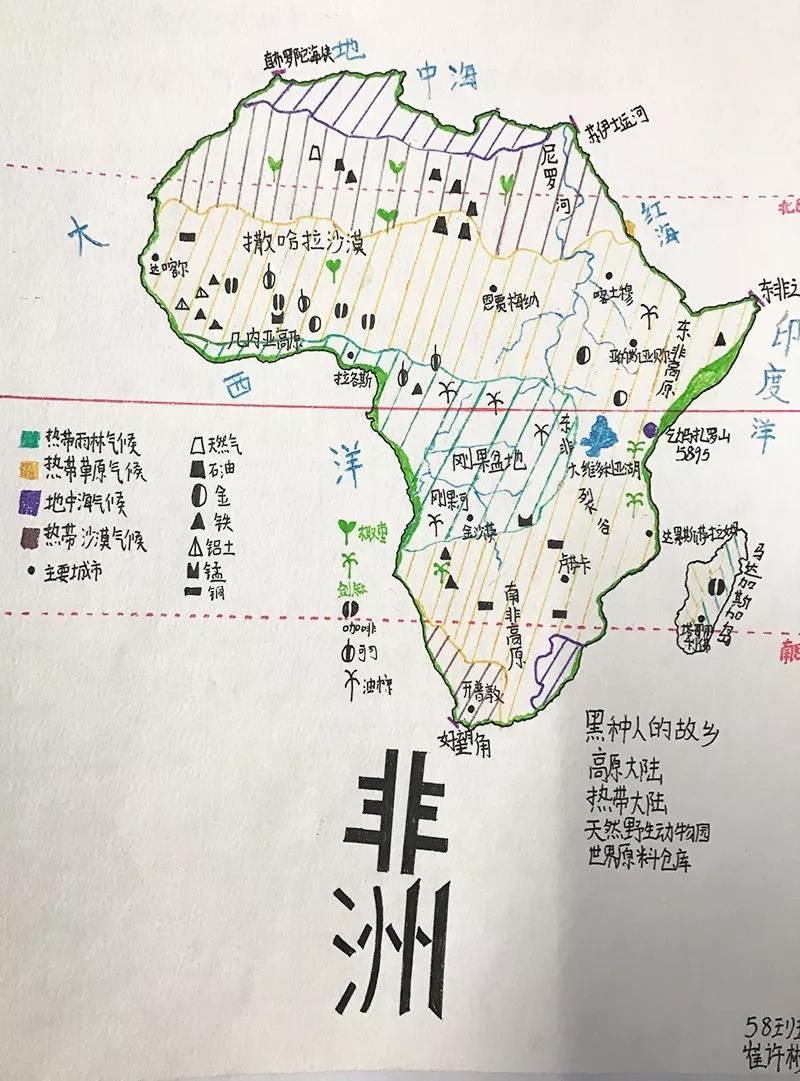 直布罗陀海峡
地中海
苏伊士运河
尼罗河
红海
大西洋
撒哈拉沙漠
达喀尔
恩贾梅纳
喀土穆
东非
印度洋
几内亚高原
拉各斯
亚的斯亚贝尔
东非高原
乞妈扎罗山
5895
东非裂谷
大维多利亚湖
刚果盆地
刚果河
金沙萨
达累斯萨拉姆
卢萨卡
马达加斯加岛
南非高原
开普敦
好望角
热带雨林气候
热带草原气候
地中海气候
热带沙漠气候
主要城市
天然气
石油
金
铁
铝土
锰
铜
橄榄
剑麻
咖啡
可可
油棕
黑种人的故乡
高原大陆
热带大陆
天然野生动物园
世界原料仓库
非洲
58班
崔许彬